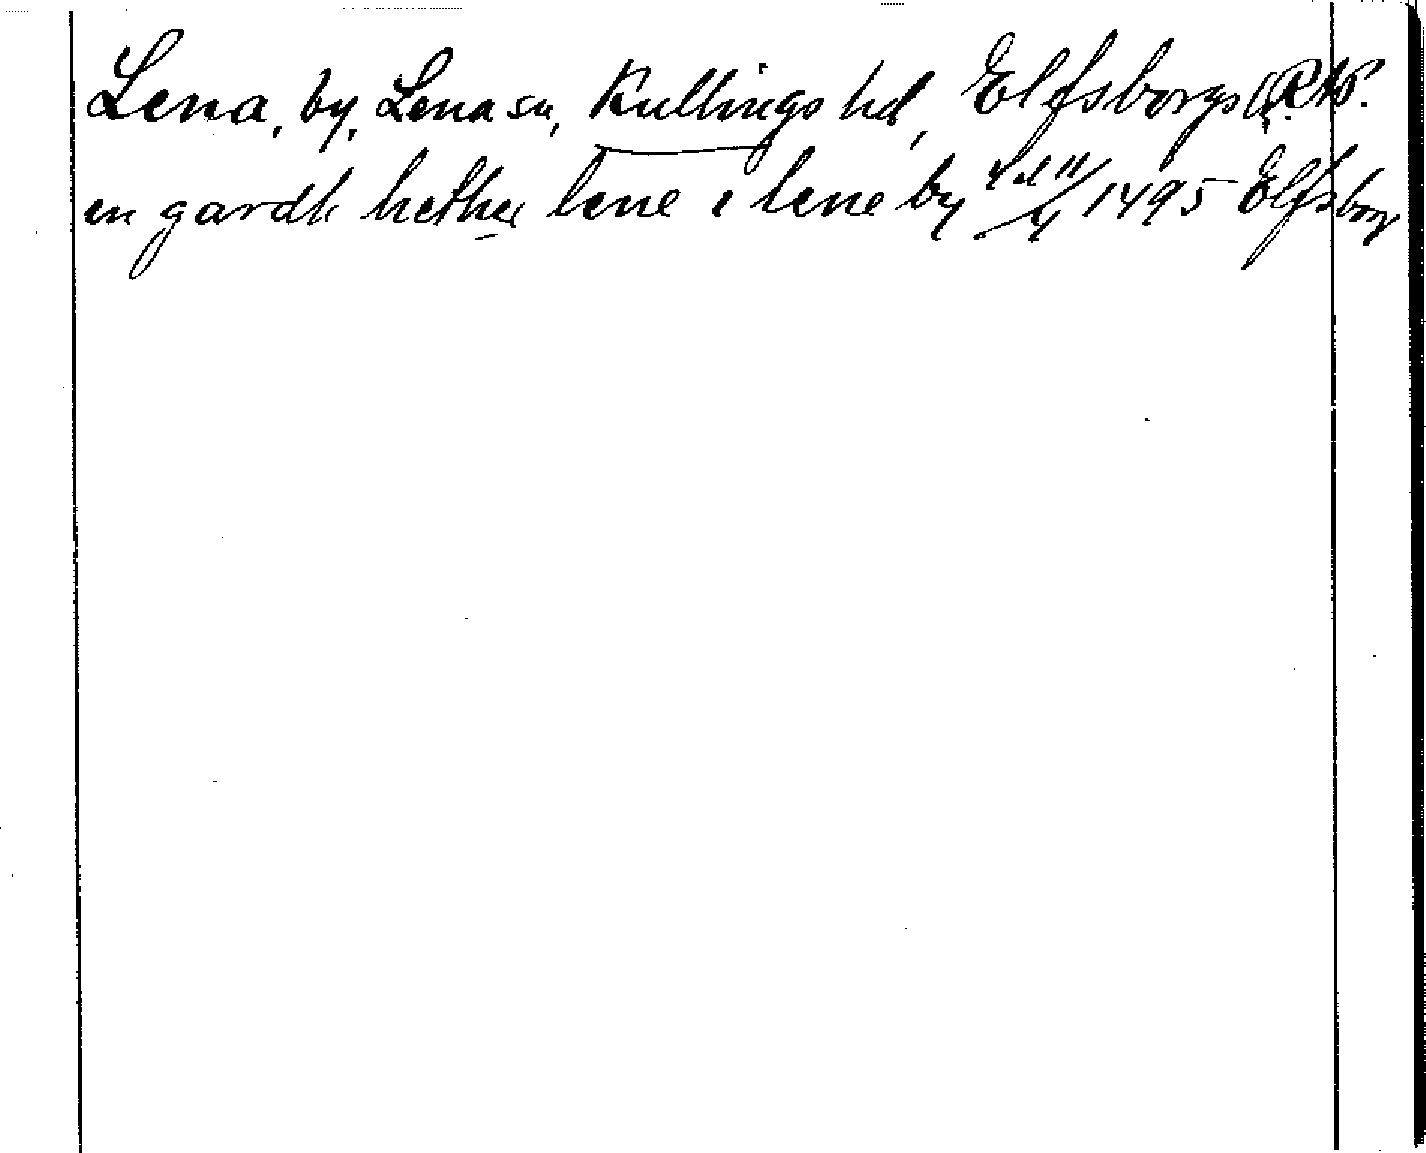 Lena, by, Lena sn, Kullings hd, Elfsborgs l. RAP.
en gardh hether lene i lene by 1495 Elfsborg